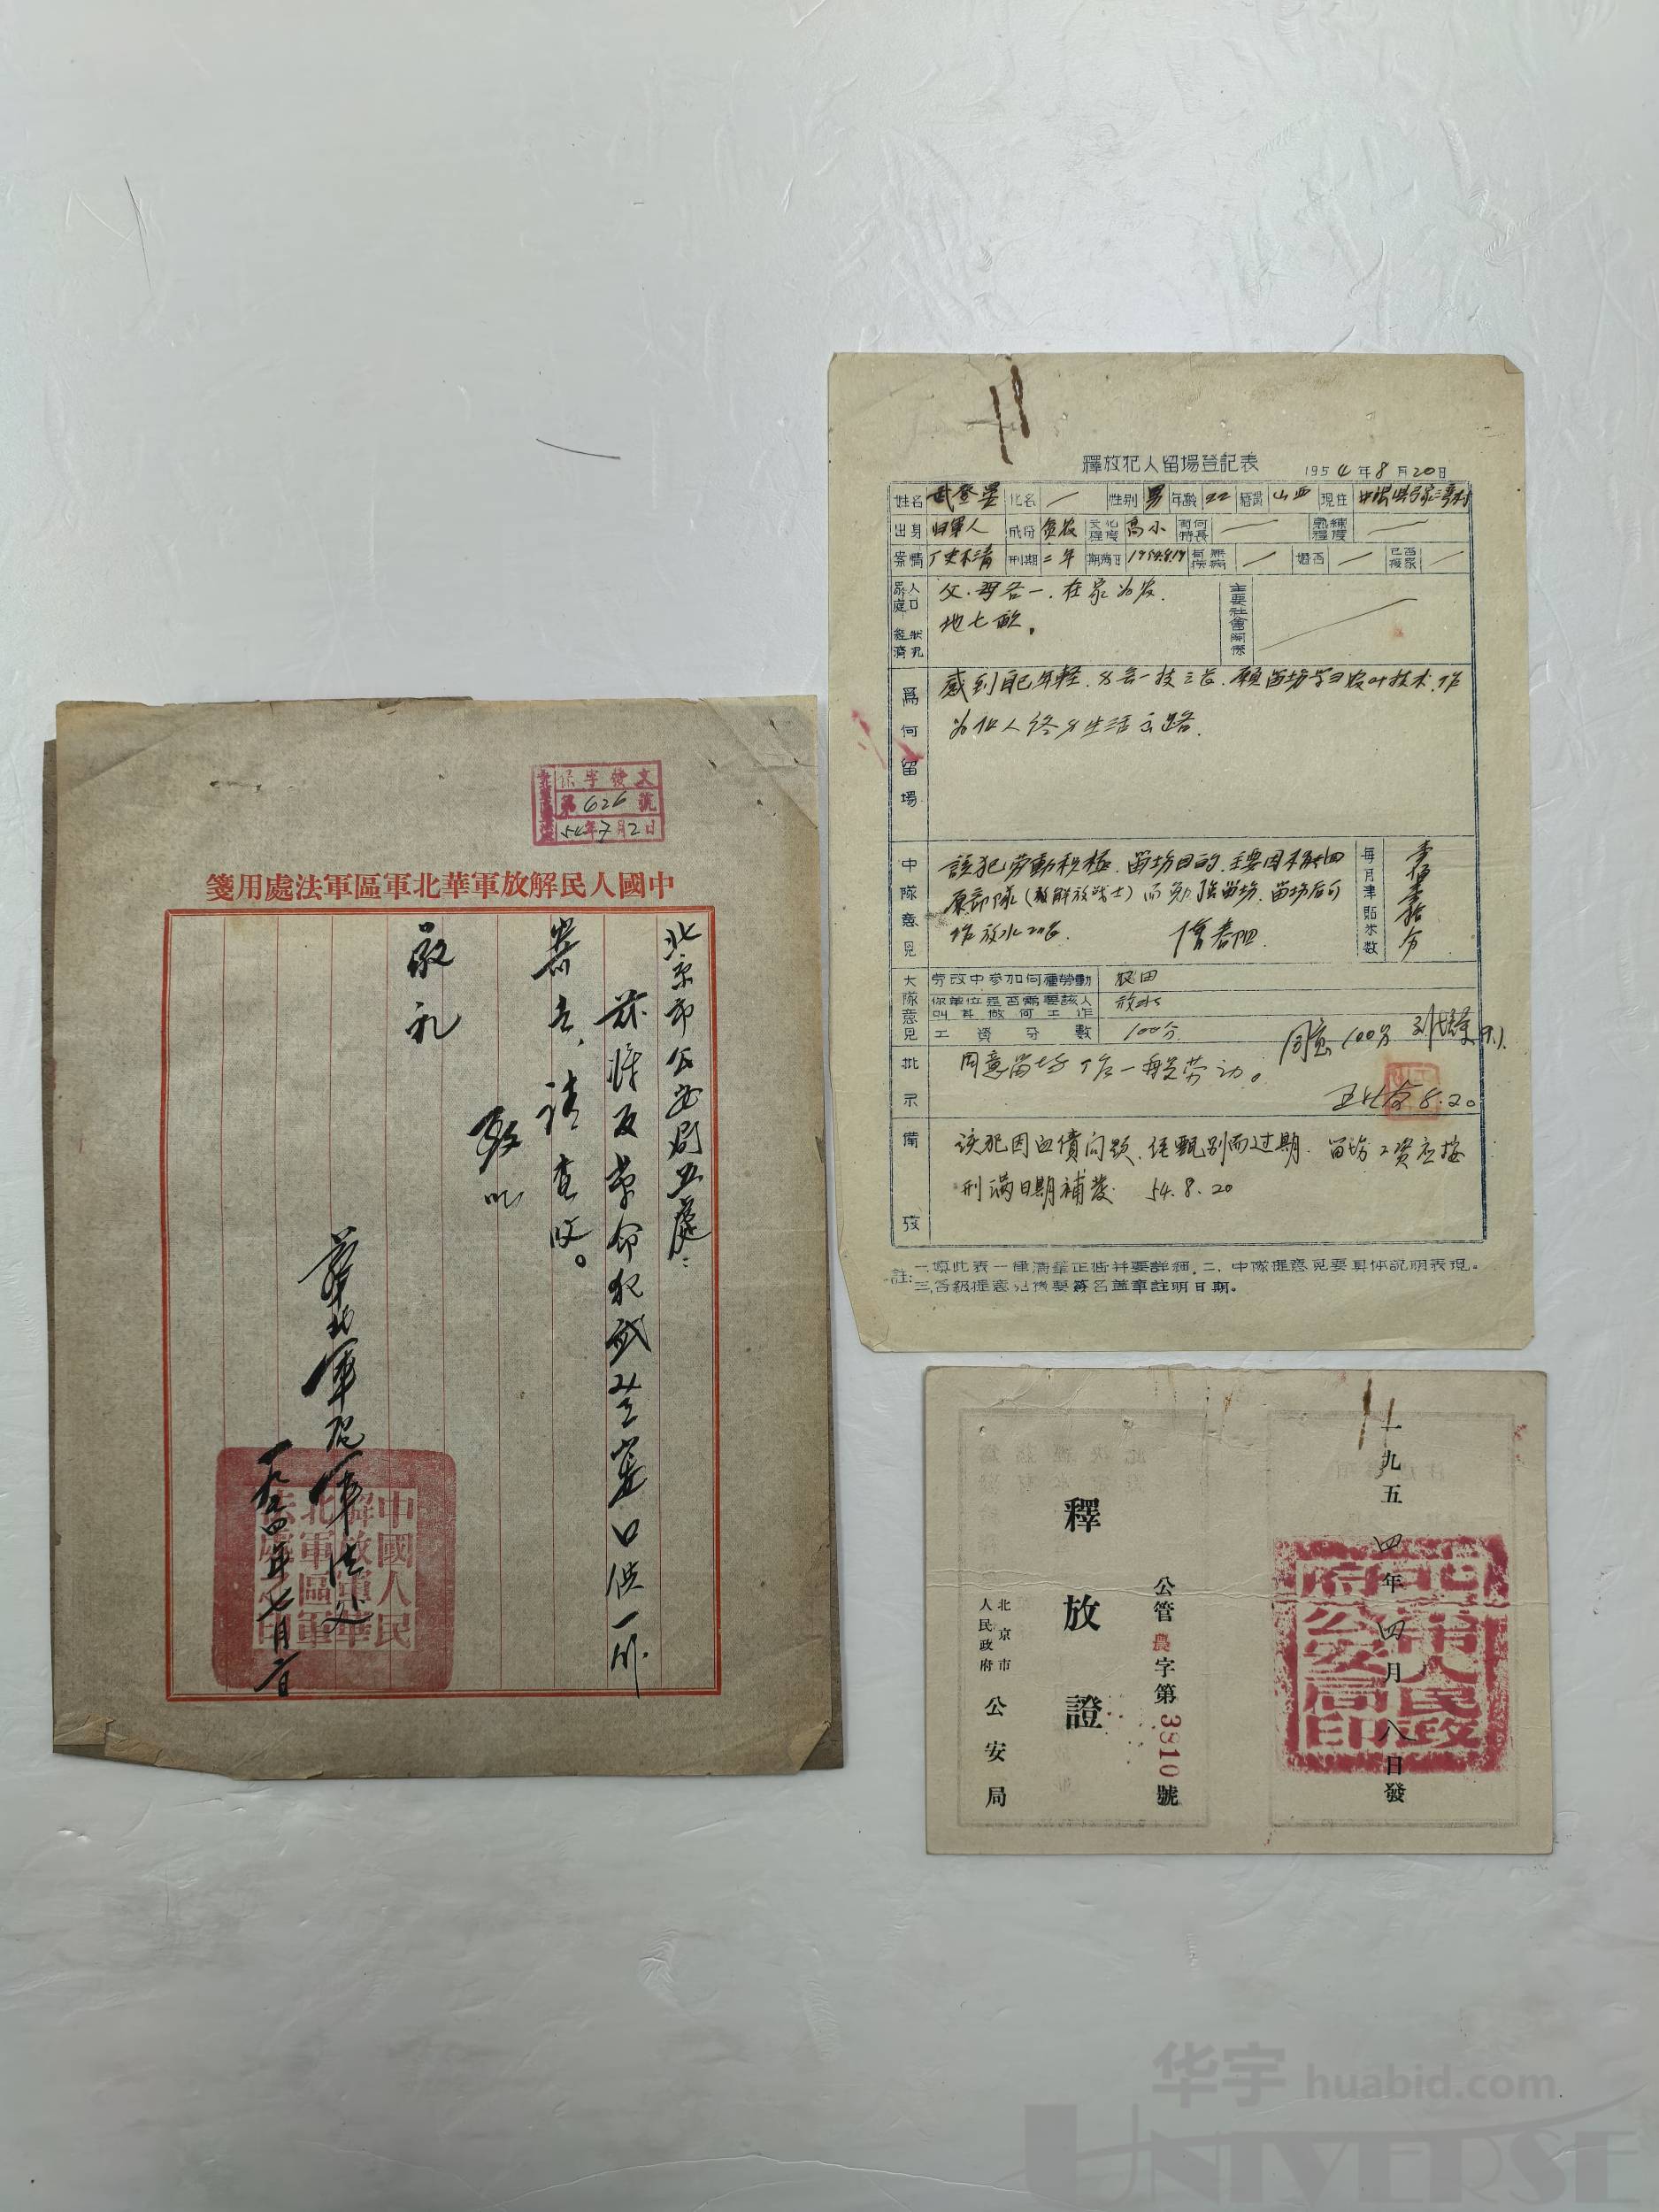 保字發文
第626號
54年7月2日
中國人民解放軍華北軍區軍法處用箋
北京市公安局五處：
茲將反革命犯武登晏口供一份
送去，請查收。
致以
敬礼
華北軍區軍法处
一九五四年七月二日
中國人民解放軍華北軍區軍法處印
釋放犯人留場登記表
1954年8月20日
姓名 武登晏 化名 — 性别 男 年齡 22 籍貫 山西 現住
出身 旧軍人 成份 貧农 文化程度 高小 有何特長 — 熟練程度 —
案情 历史不清 刑期 二年 期滿日 1954.8.19 有無疾病 — 婚否 — 已否報家 —
家庭人口經濟狀况
父、母各一、在家为农。
地七畝。
主要社會關係
為何留場
感到自己年輕、无一技之长、願留場学习农业技术、作
为个人终身生活之路。
中隊意見
該犯劳動积極、留場目的、主要因不能回
原部隊（系解放战士）而勉強留場、留場后可
作放水工作。
每月津貼米数
壹佰壹拾分
大隊意見
劳改中参加何種勞動 农田
你單位是否需要該人叫其做何工作 放水
工資分數 100分
同意100分
批示
同意留场作一般劳动。
8.20
備攷
该犯因血債问题、经甄别而过期、留场工资应按
刑满日期補发 54.8.20
註：一、填此表一律清楚正楷并要詳細。二、中隊提意見要具体説明表現。
三、各級提意見後要簽名蓋章註明日期。
一九五四年四月八日發
市人民政府公安局印
公管農字第3810號
釋放證
北京市人民政府公安局
华宇 huabid.com
UNIVERSE